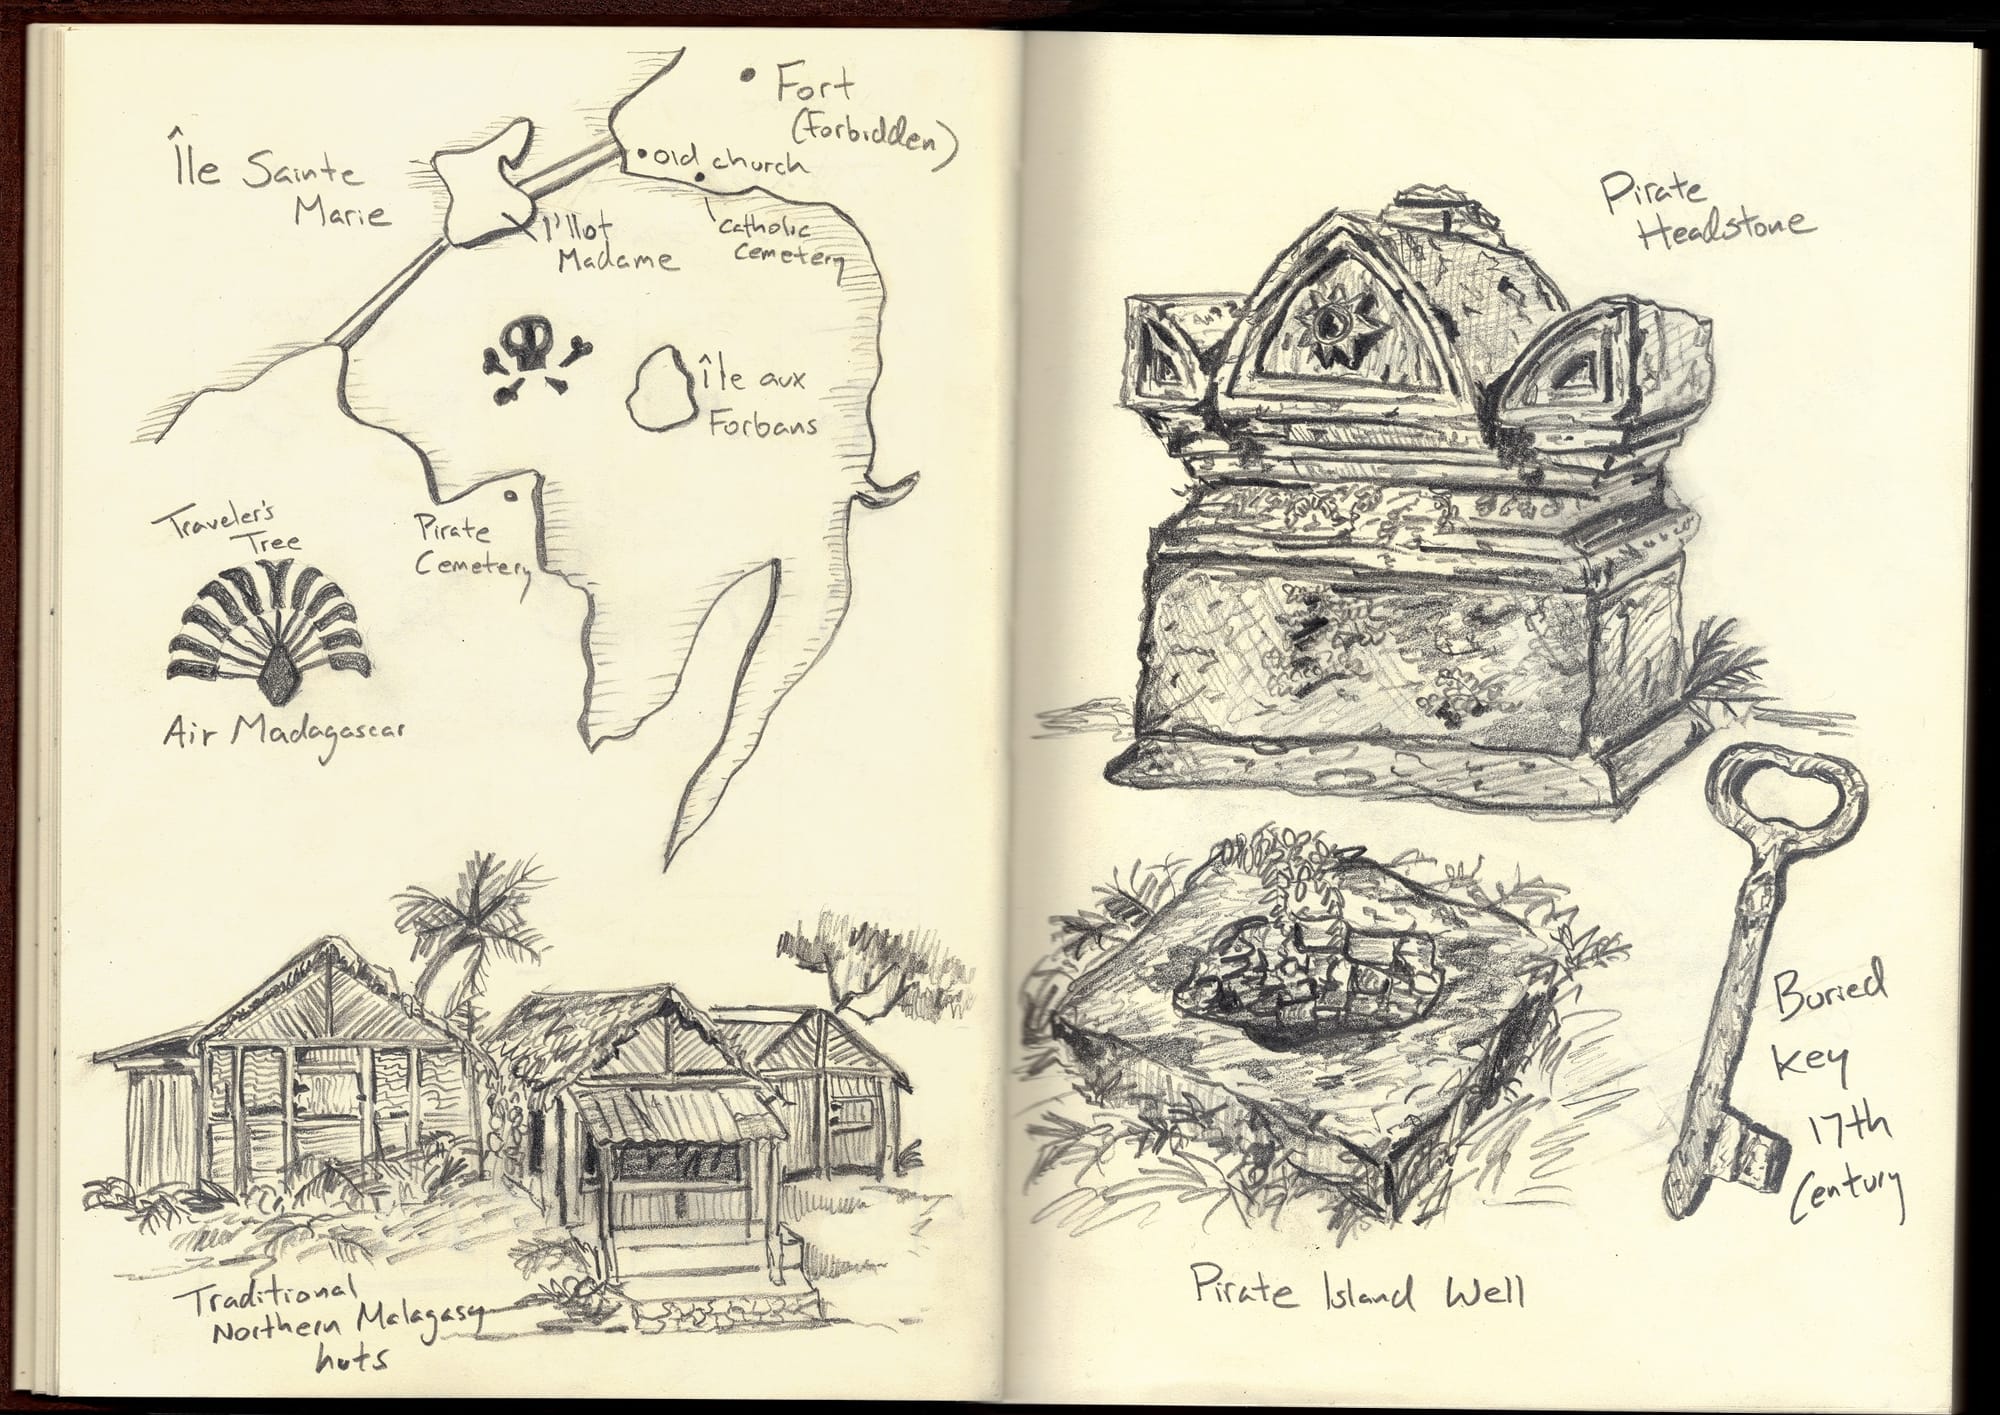 Île Sainte
Marie
Fort
(Forbidden)
old church
l'Ilot
Madame
Catholic
Cemetery
Île aux
Forbans
Pirate
Cemetery
Traveler's
Tree
Air Madagascar
Traditional
Northern Malagasy
huts
Pirate
Headstone
Buried
key
17th
Century
Pirate Island Well